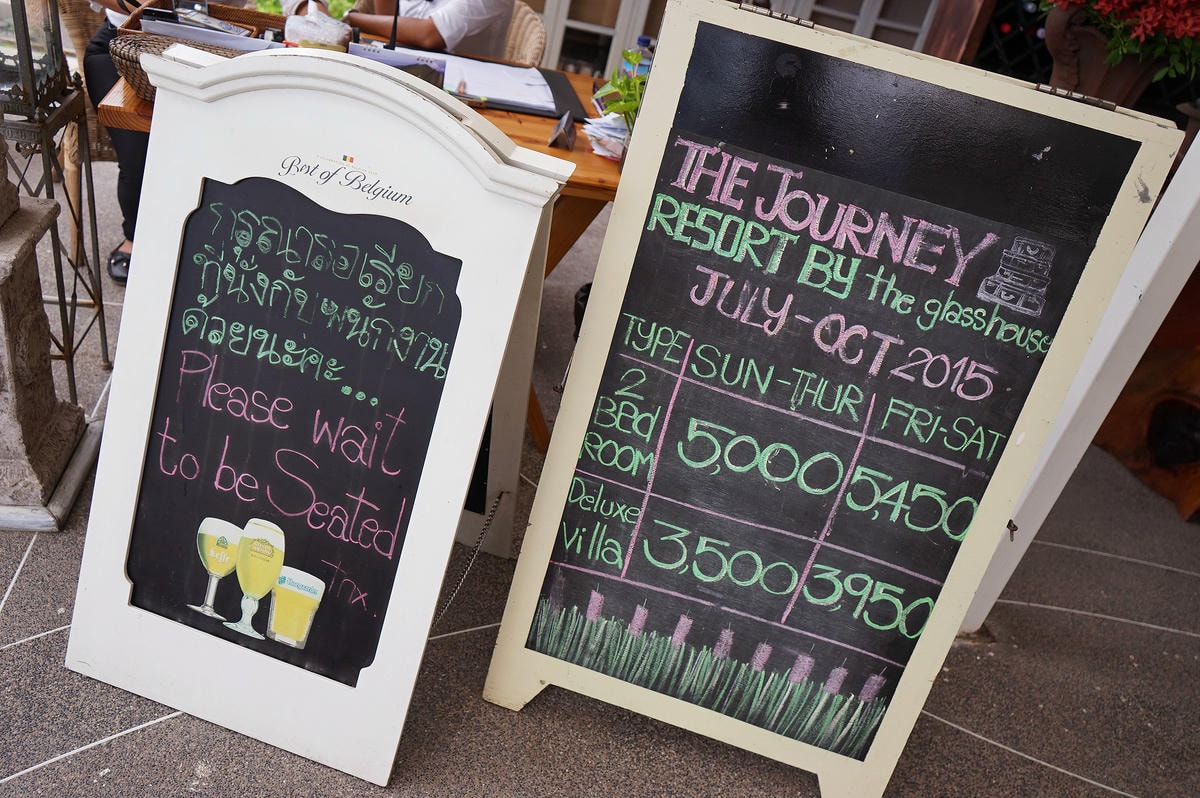 Best of Belgium
กรุณารอเรียก
ที่นั่งกับพนักงาน
ด้วยนะคะ...
Please wait
to be Seated
Tnx.
Leffe
Hoegaarden
THE JOURNEY
RESORT BY the glasshouse
JULY-OCT 2015
TYPE SUN-THUR FRI-SAT
2
Bed
ROOM 5,000 5,450
Deluxe
Villa 3,500 3,950